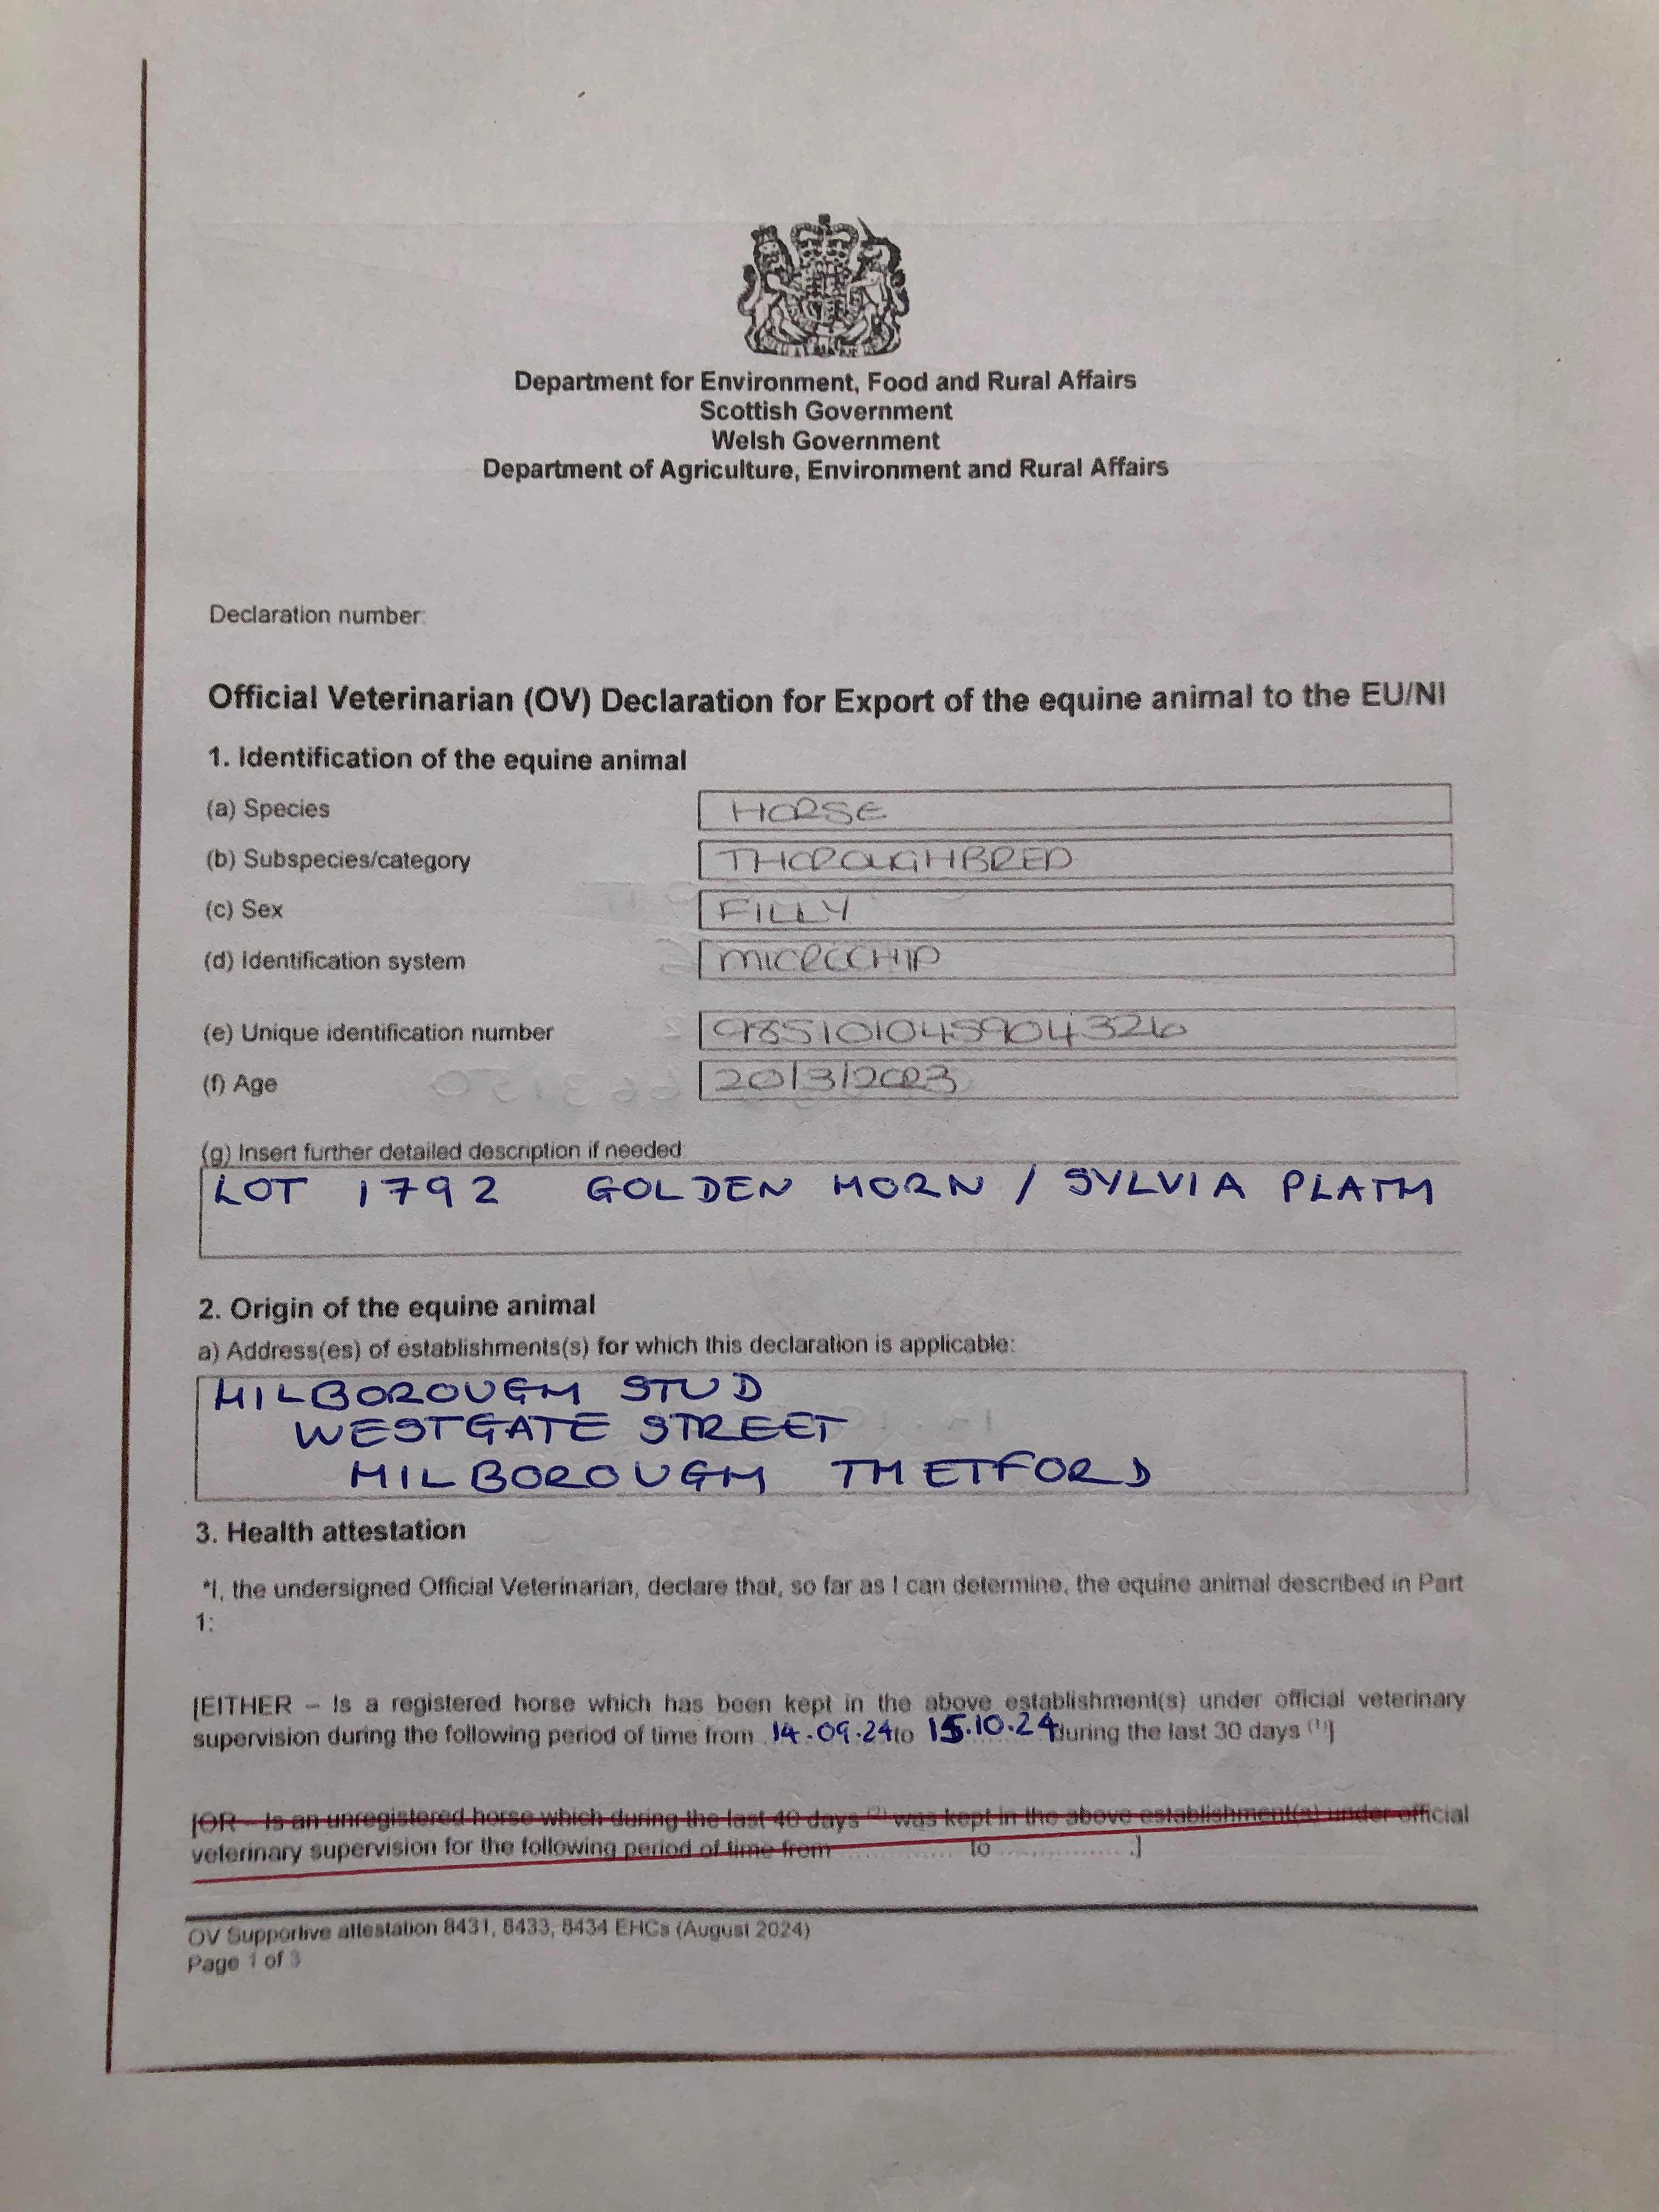 Department for Environment, Food and Rural Affairs
Scottish Government
Welsh Government
Department of Agriculture, Environment and Rural Affairs
Declaration number:
Official Veterinarian (OV) Declaration for Export of the equine animal to the EU/NI
1. Identification of the equine animal
(a) Species HORSE
(b) Subspecies/category THOROUGHBRED
(c) Sex FILLY
(d) Identification system MICROCHIP
(e) Unique identification number 985101045904326
(f) Age 20/3/2023
(g) Insert further detailed description if needed
LOT 1792 GOLDEN HORN / SYLVIA PLATH
2. Origin of the equine animal
a) Address(es) of establishments(s) for which this declaration is applicable:
HILBOROUGH STUD
WESTGATE STREET
HILBOROUGH THETFORD
3. Health attestation
*I, the undersigned Official Veterinarian, declare that, so far as I can determine, the equine animal described in Part
1:
[EITHER – Is a registered horse which has been kept in the above establishment(s) under official veterinary
supervision during the following period of time from 14.09.24 to 15.10.24 during the last 30 days (1)]
[OR – Is an unregistered horse which during the last 40 days (2) was kept in the above establishment(s) under official
veterinary supervision for the following period of time from .............. to .................]
OV Supportive attestation 8431, 8433, 8434 EHCs (August 2024)
Page 1 of 3